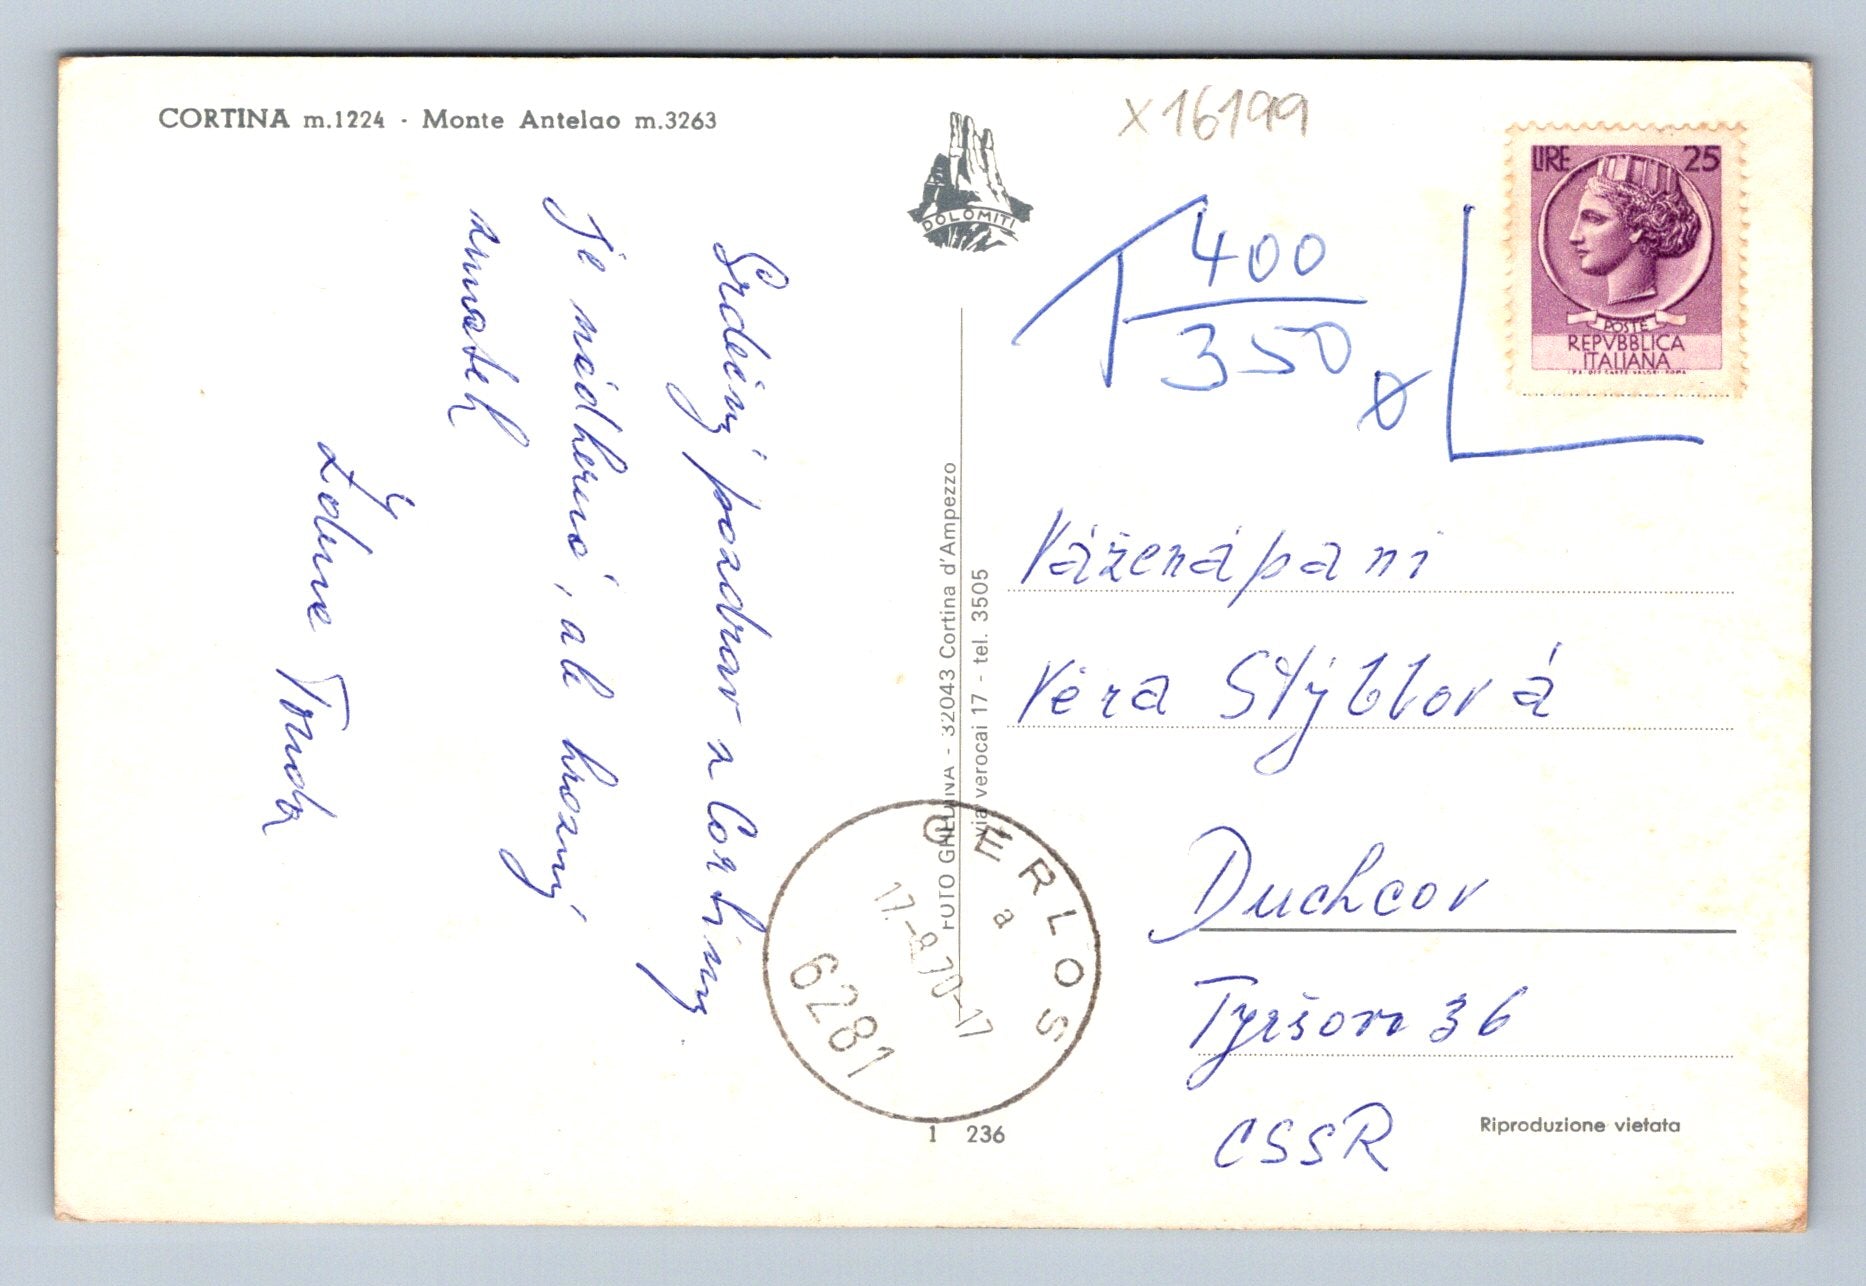 CORTINA m.1224 · Monte Antelao m.3263
DOLOMITI
X16199
LIRE 25
POSTE
REPVBBLICA
ITALIANA
I.P.S. OFF. CARTE VALORI - ROMA
T 400
350
Srdečný pozdrav z Cortiny
Je nádherná, ale hrozný
zmatek
Zdena Tonda
FOTO GHEDINA - 32043 Cortina d'Ampezzo
via verocai 17 - tel. 3505
Vážená paní
Věra Stýblová
Duchcov
Tyršova 36
CSSR
GERLOS
a
17.-8.70-17
6281
1 236
Riproduzione vietata